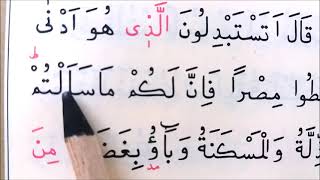 قَالَ اَتَسْتَبْدِلُونَ الَّذِى هُوَ اَدْنٰى
مِصْرًا فَاِنَّ لَكُمْ مَاسَاَلْتُمْ
وَالْمَسْكَنَةُ وَبَاؤُ مِنَ